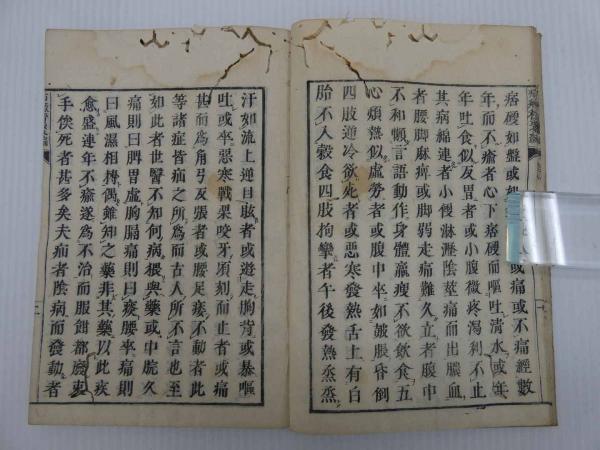 痞硬如盤或如或痛或不痛經數
年而不瘉者心下痞硬而嘔吐清水或每
年吐食似反胃者或小腹微疼瀉利不止
其病綿連者小便淋瀝陰莖痛而出膿血
腰脚麻痺或脚弱走痛難久立者腹中
不和懶言語動作身體羸瘦不欲飲食五
心煩熱似虛勞者或腹中卒如皷脹昏倒
四肢逆冷欲死者或惡寒發熱舌上有白
胎不入穀食四肢拘攣者午後發熱烝烝
汗如流上逆目眩者或遊走胸背或暴嘔
吐或卒惡寒戰栗咬牙頃刻而止者或痛
甚而為角弓反張者或腰足痿不動者此
等諸症皆疝之所為而古人所不言也至
如此者世醫不知何病猥與藥或中脘久
痛則曰脾胃虛胸膈痛則曰痰腰卒痛則
曰風濕相摶偶雖知之藥非其藥以此疾
愈盛連年不瘉遂為不治而服鉗都廢束
手俟死者甚多矣夫疝者陰病而發動者